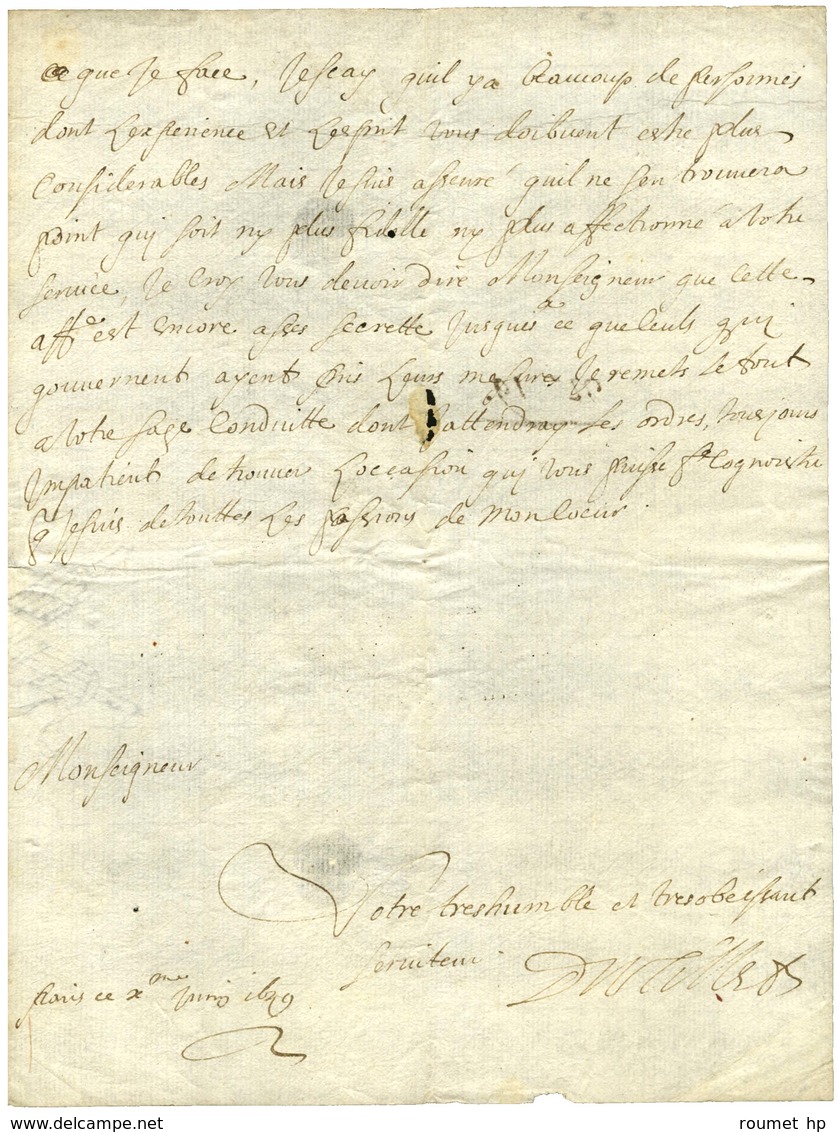 ce que Je face, Je scay quil ya beaucoup de personnes
dont Lexperience et Lesprit vous doibuent estre plus
Considerables Mais Je suis asseuré quil ne sen trouuera
point qui soit ny plus fidelle ny plus affectionné a votre
seruice, Je croy vous deuoir dire Monseigneur que cette
affe est encore asses secrette Jusques a ce que ceuls qui
gouuernent ayent pris Leurs mesures Je remets Le tout
a votre sage Conduitte dont Jattendray Les ordres, tousjours
Impatient de trouuer Loccasion qui vous puisse fe Cognoistre
q Je suis de touttes Les passions de mon Coeur
Monseigneur
Votre treshumble et tresobeissant
seruiteur
Paris ce xme Juin 1649
roumet hp